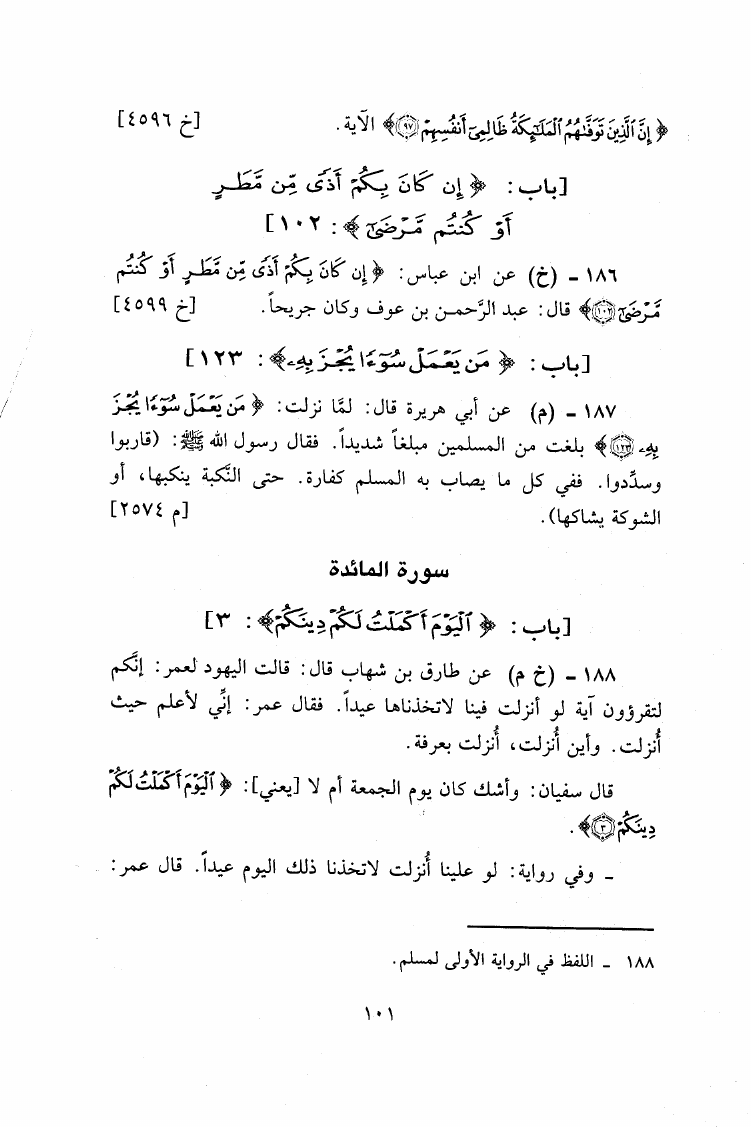 ﴿ إِنَّ ٱلَّذِينَ تَوَفَّىٰهُمُ ٱلْمَلَـٰٓئِكَةُ ظَالِمِىٓ أَنفُسِهِمْ ۝٩٧ ﴾ الآية. [خ ٤٥٩٦]
[باب: ﴿ إِن كَانَ بِكُمْ أَذًى مِّن مَّطَرٍ
أَوْ كُنتُم مَّرْضَىٰٓ ﴾: ١٠٢]
١٨٦ ـ (خ) عن ابن عباس: ﴿ إِن كَانَ بِكُمْ أَذًى مِّن مَّطَرٍ أَوْ كُنتُم
مَّرْضَىٰٓ ۝١٠٢ ﴾ قال: عبد الرَّحمـن بن عوف وكان جريحاً. [خ ٤٥٩٩]
[باب: ﴿ مَن يَعْمَلْ سُوٓءًا يُجْزَ بِهِۦ ﴾: ١٢٣]
١٨٧ ـ (م) عن أبي هريرة قال: لمَّا نزلت: ﴿ مَن يَعْمَلْ سُوٓءًا يُجْزَ
بِهِۦ ۝١٢٣ ﴾ بلغت من المسلمين مبلغاً شديداً. فقال رسول الله ﷺ: (قاربوا
وسدِّدوا. ففي كل ما يصاب به المسلم كفارة. حتى النَّكبة ينكبها، أو
الشوكة يشاكها). [م ٢٥٧٤]
سورة المائدة
[باب: ﴿ ٱلْيَوْمَ أَكْمَلْتُ لَكُمْ دِينَكُمْ ﴾: ٣]
١٨٨ ـ (خ م) عن طارق بن شهاب قال: قالت اليهود لعمر: إنَّكم
لتقرؤون آية لو أنزلت فينا لاتخذناها عيداً. فقال عمر: إنِّي لأعلم حيث
أُنزلت. وأين أُنزلت، أُنزلت بعرفة.
قال سفيان: وأشك كان يوم الجمعة أم لا [يعني]: ﴿ ٱلْيَوْمَ أَكْمَلْتُ لَكُمْ
دِينَكُمْ ۝٣ ﴾.
ـ وفي رواية: لو علينا أُنزلت لاتخذنا ذلك اليوم عيداً. قال عمر:
١٨٨ ـ اللفظ في الرواية الأولى لمسلم.
١٠١